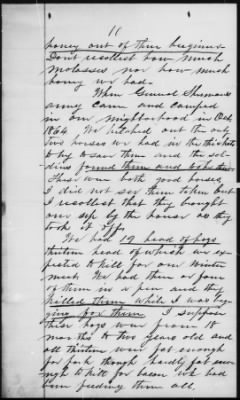 11
honey out of there beginns
Dont recollect how much
molasses nor how much
honey we had.
When General Shermans
army came and camped
in our nighborhood in Oct,
1864 We hitched out the only
two horses we had in the thickets
to try to save them and the sol-
diers found them and took them
This were both good horses
I did not see them taken but
I recollect that they brought
one up by the house as they
took it off.
We had 19 head of hogs
thirteen head of which we ex-
pected to kill for our winter
meat. We had three or four
of them in a pen and they
killed them while I was beg-
ging for them. I suppose
these hogs were from 18
months to two years old and
all thirteen were fat enough
for pork though hardly fat enou-
gh to kill for bacon. We had
been feeding them all,